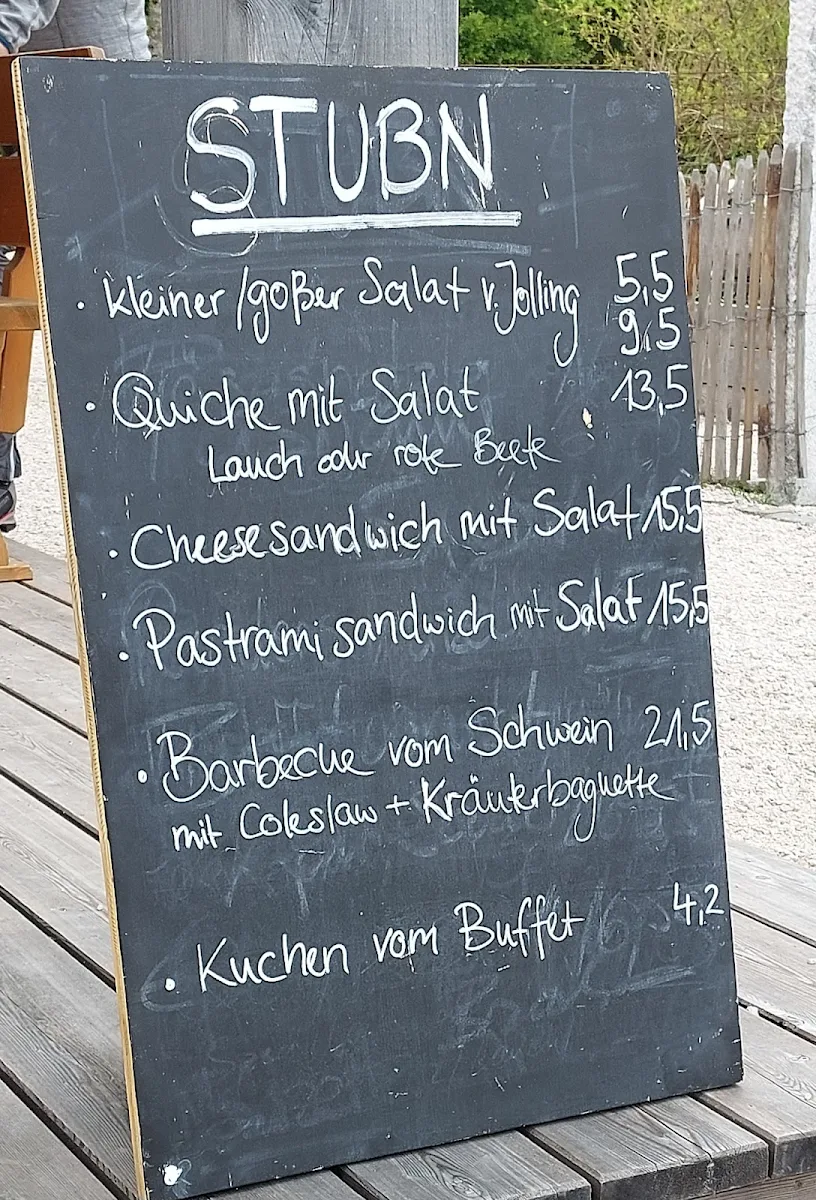 STUBN
· kleiner/goßer Salat v. Jolling 5,5
9,5
· Quiche mit Salat 13,5
Lauch oder rote Beete
· Cheesesandwich mit Salat 15,5
· Pastrami sandwich mit Salat 15,5
· Barbecue vom Schwein 21,5
mit Coleslaw + Kräuterbaguette
· Kuchen vom Buffet 4,2